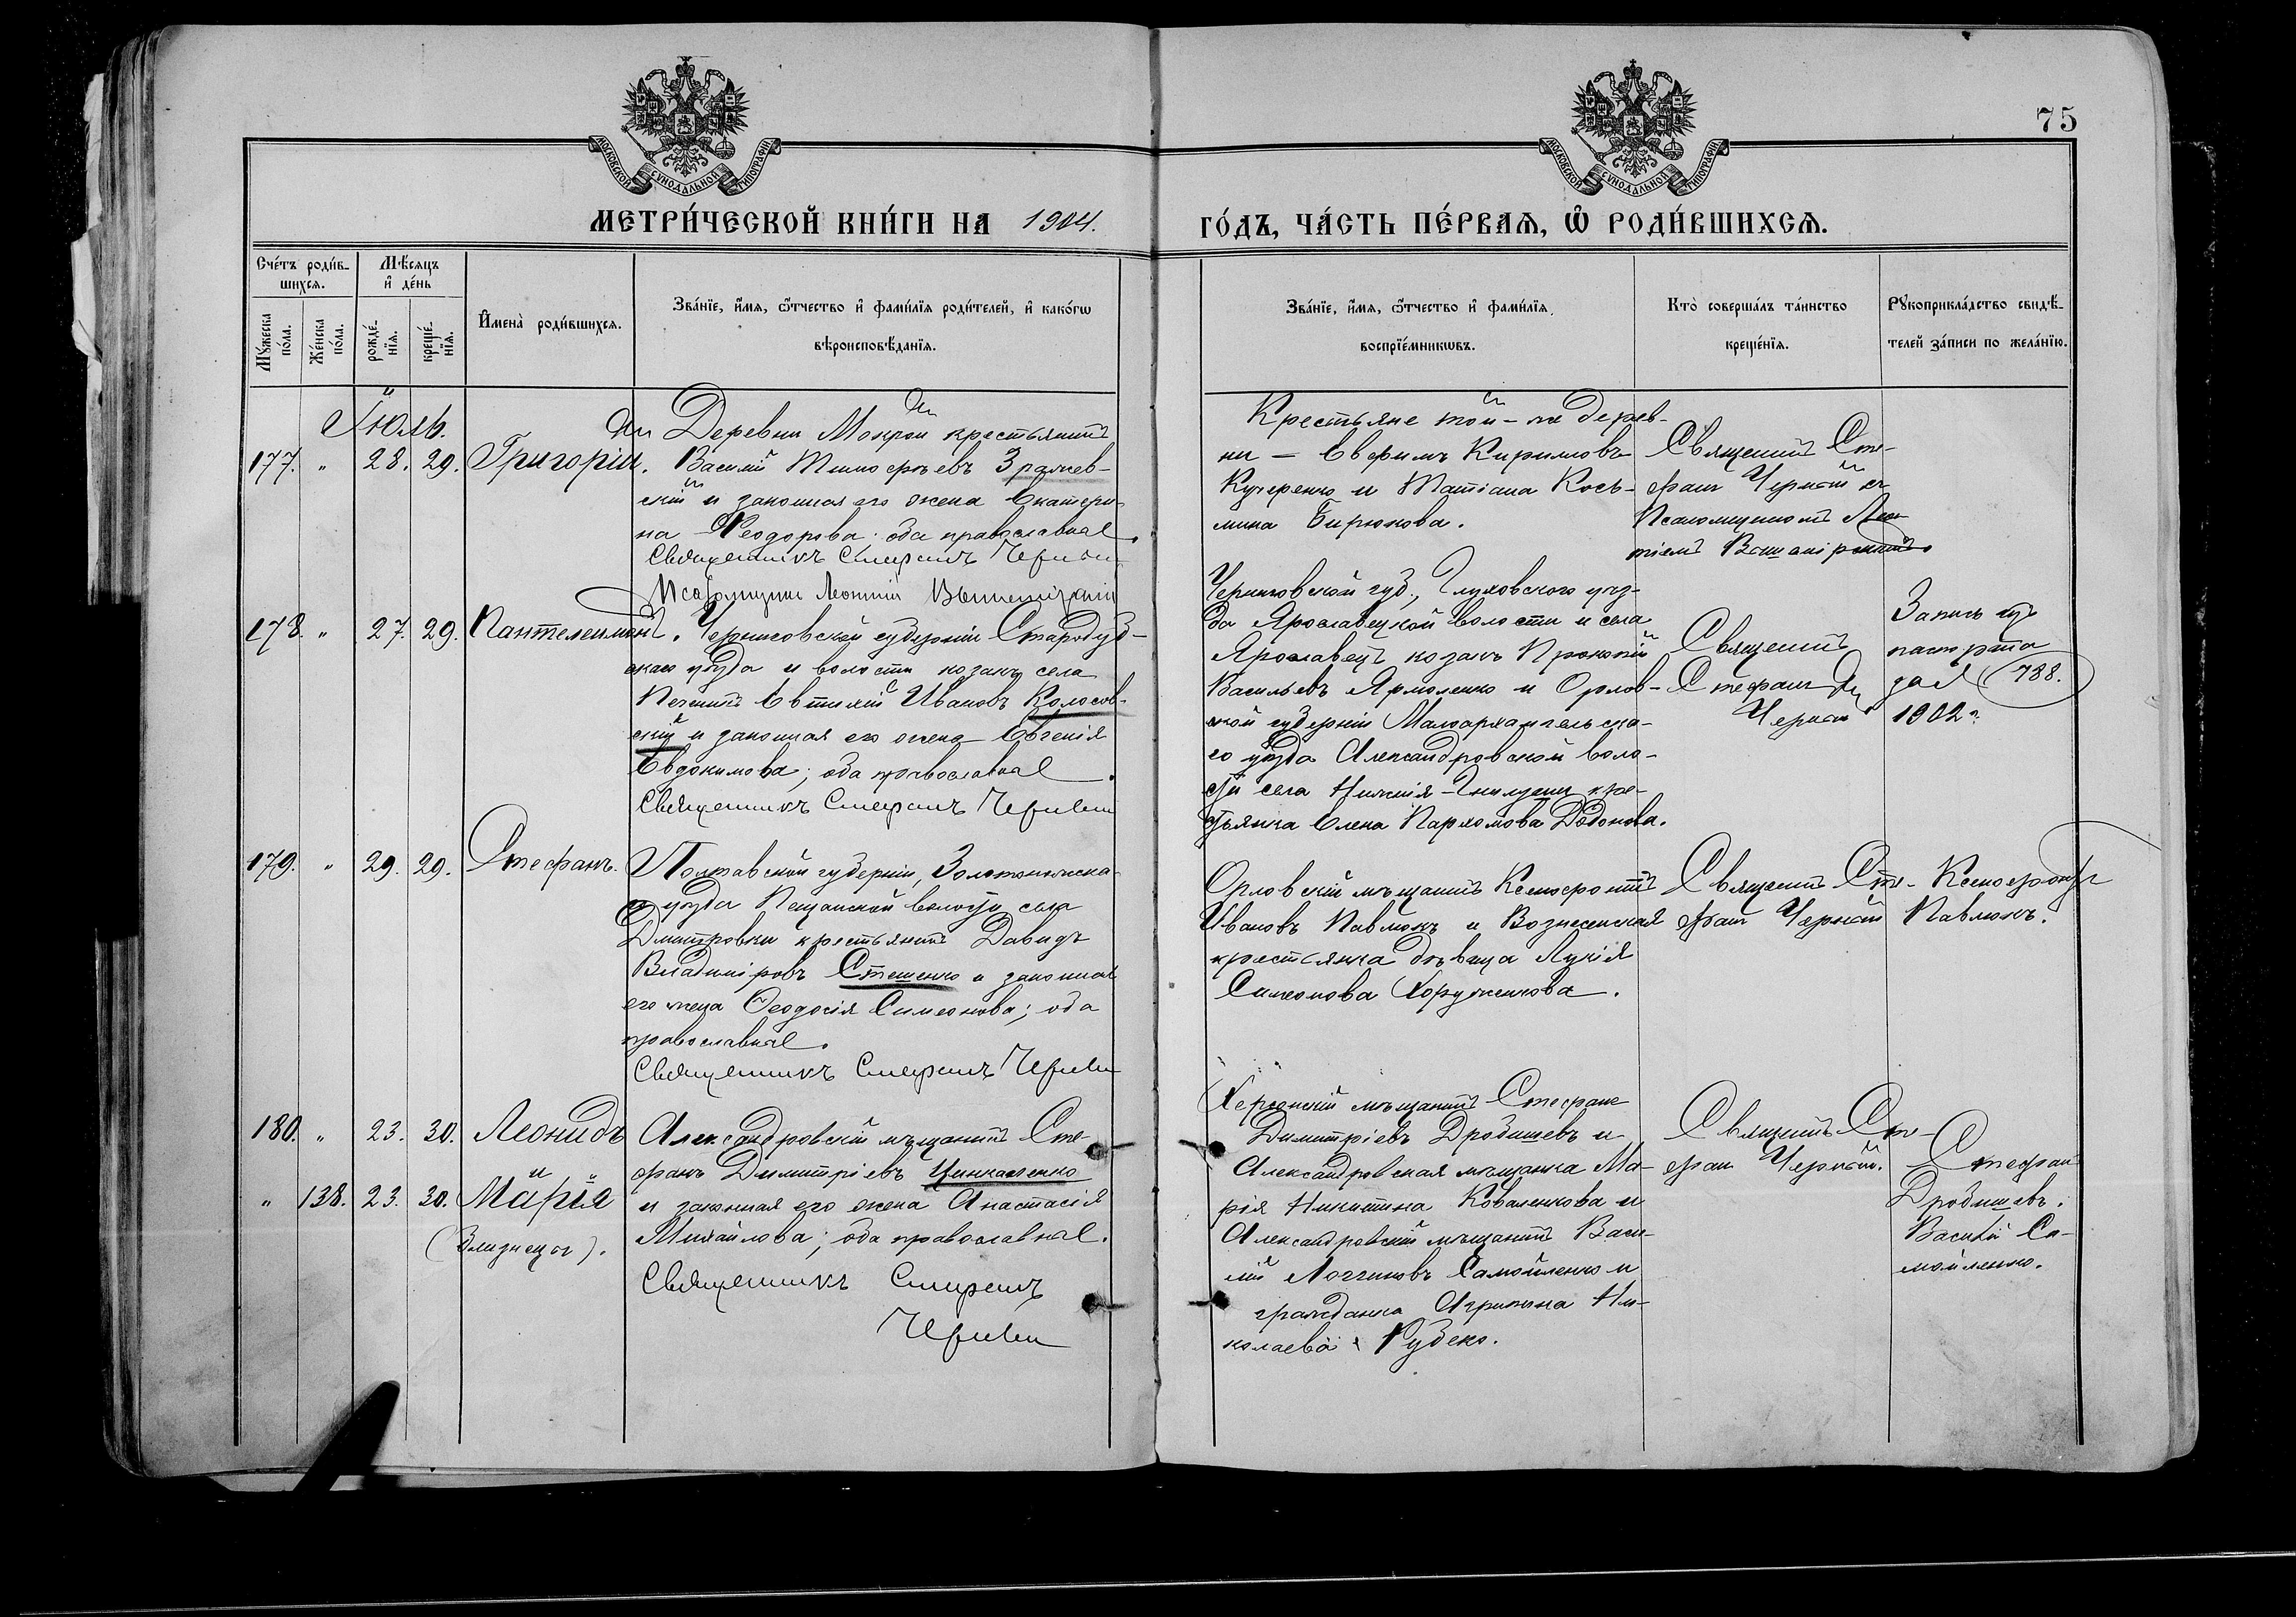 75
МОСКОВСКОЙ СУНОДАЛЬНОЙ ТИПОГРАФІИ
МОСКОВСКОЙ СУНОДАЛЬНОЙ ТИПОГРАФІИ
МЕТРИ́ЧЕСКОЙ КНИ́ГИ НА 1904.
ГО́ДЪ, ЧА́СТЬ ПЕ́РВАѦ, Ѡ҆ РОДИ́ВШИХСѦ.
Сче́тъ роди́в-
шихсѧ.
Мꙋ́жеска
по́ла.
Же́нска
по́ла.
Мѣ́сѧцъ
и҆ де́нь
рожде́-
нїѧ.
креще́-
нїѧ.
И҆мена̀ роди́вшихсѧ.
Зва́нїе, и҆́мѧ, ѻ҆́тчество и҆ фами́лїѧ роди́телей, и҆ како́гѡ
вѣроисповѣ́данїѧ.
Зва́нїе, и҆́мѧ, ѻ҆́тчество и҆ фами́лїѧ
воспрїе́мникѡвъ.
Кто̀ соверша́лъ та́инство
креще́нїѧ.
Рꙋкоприкла́дство свидѣ́-
телей за́писи по жела́нїю.
Іюль.
177. " 28. 29. Григорій.
Деревни Мокрой крестьянинъ
Василій Тимофѣевъ Зражев-
скій и законная его жена Екатери-
на Ѳеодорова; оба православные.
Священникъ Стефанъ Черный
Псаломщикъ Леонтій
Крестьяне той-же дерев-
ни — Евфимъ Кирилловъ
Кучеренко и Татіана Кось-
мина Бирюкова.
Священникъ Сте-
фанъ Черный съ
Псаломщикомъ Леон-
тіемъ
178. " 27. 29. Пантелеимонъ.
Черниговской губерніи Стародуб-
скаго уѣзда и волости козакъ села
Евтихій Ивановъ Колосов-
скій и законная его жена Евгенія
Евдокимова; оба православные.
Священникъ Стефанъ Черный
Черниговской губ., Глуховского уѣз-
да Ярославецкой волости и села
Ярославецъ козакъ Прокопій
Васильевъ Ярмоленко и Орлов-
ской губерніи Малоархангельска-
го уѣзда Александровской воло-
сти села кре-
стьянка Елена Пархомова Додонова.
Священникъ
Стефанъ
Черный
Запись изъ
паспорта
за № 788.
1902 г.
179. " 29. 29. Стефанъ.
Полтавской губерніи, Золотоношска-
го уѣзда Пещанской волости села
Дмитровки крестьянинъ Давидъ
Владиміровъ Стешенко и законная
его жена Ѳеодосія Симеонова; оба
православные.
Священникъ Стефанъ Черный
Орловскій мѣщанинъ Ксенофонтъ
Ивановъ Павлюкъ и Вознесенская
крестьянка дѣвица Лукія
Симеонова Хорунженкова.
Священникъ Сте-
фанъ Черный
Ксенофонтъ
Павлюкъ.
180. " 23. 30. Леонидъ
и
" 138. 23. 30. Марія
(Близнецы).
Александровскій мѣщанинъ Сте-
фанъ Димитріевъ Цинкаленко
и законная его жена Анастасія
Михайлова; оба православные.
Священникъ Стефанъ
Черный
Херсонскій мѣщанинъ Стефанъ
Димитріевъ Дробишевъ и
Александровская мѣщанка Ма-
рія Никитина Коваленкова и
Александровскій мѣщанинъ Васи-
лій Логгиновъ Самойленко и
гражданка Агрипина Ни-
колаева Рубеко.
Священникъ Сте-
фанъ Черный.
Стефанъ
Дробишевъ.
Василій Са-
мойленко.